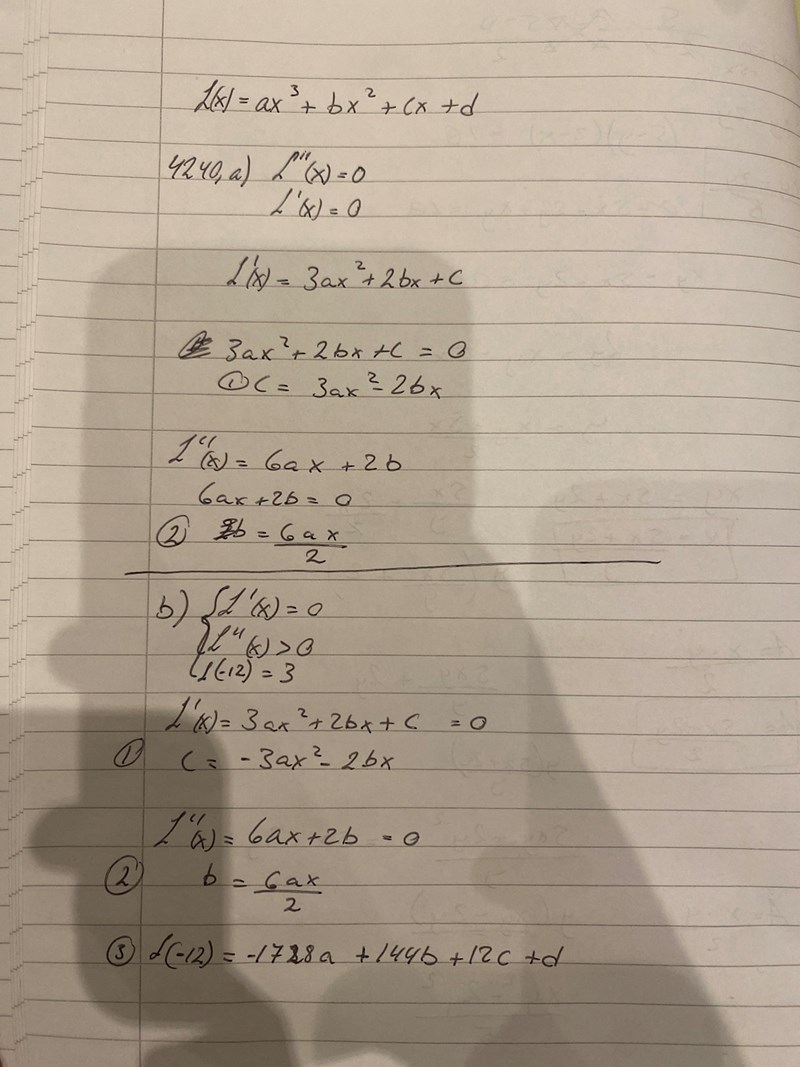 f(x) = ax³ + bx² + cx + d
4240, a) f''(x) = 0
f'(x) = 0
f'(x) = 3ax² + 2bx + c
3ax² + 2bx + c = 0
① c = 3ax² - 2bx
f''(x) = 6ax + 2b
6ax + 2b = 0
② b = 6ax/2
b) { f'(x) = 0
f''(x) > 0
f(-12) = 3
f'(x) = 3ax² + 2bx + c = 0
① c = -3ax² - 2bx
f''(x) = 6ax + 2b = 0
② b = 6ax/2
③ f(-12) = -1728a + 144b + 12c + d